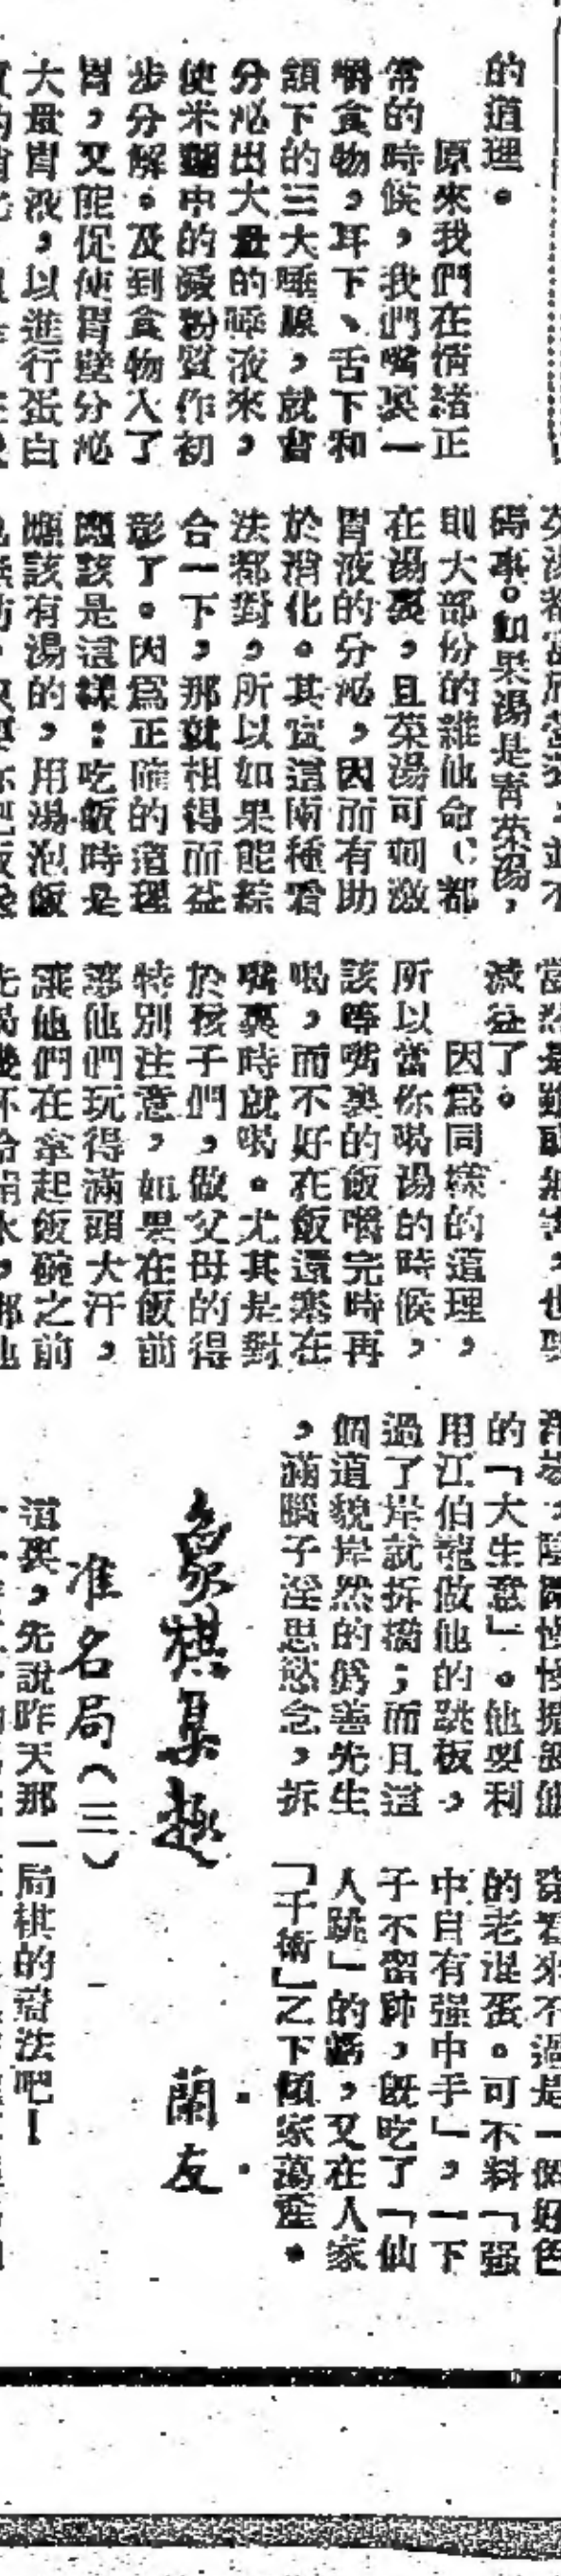 的道理。
原來我們在情緒正
常的時候，我們嘴裏一
嚼食物，耳下、舌下和
頷下的三大唾腺，就會
分泌出大量的唾液來，
使米麵中的澱粉質作初
步分解。及到食物入了
胃，又能促使胃壁分泌
大量胃液，以進行蛋白
碍事。如果湯是青菜湯，
則大部份的維他命C都
在湯裏，且菜湯可刺激
胃液的分泌，因而有助
於消化。其實這兩種看
法都對，所以如果能綜
合一下，那就相得而益
彰了。因爲正確的道理
應該是這樣：吃飯時是
應該有湯的，用湯泡飯
減益了。
因爲同樣的道理，
所以當你喝湯的時候，
該等嘴裏的飯嚼完時再
喝，而不好在飯還塞在
嘴裏時就喝。尤其是對
於孩子們，做父母的得
特別注意，如果在飯前
他們玩得滿頭大汗，
讓他們在拿起飯碗之前
的「大生意」。他要利
用江伯龍做他的跳板，
過了岸就拆橋；而且這
個道貌岸然的僞善先生
，滿腦子淫思慾念，拆
穿看來不過是一個好色
的老混蛋。可不料「强
中自有强中手」，一下
子不留神，旣吃了「仙
人跳」的虧，又在人家
「千術」之下傾家蕩產。
象棋集趣
蘭友
准名局（三）
道裏，先說昨天那一局棋的着法吧！